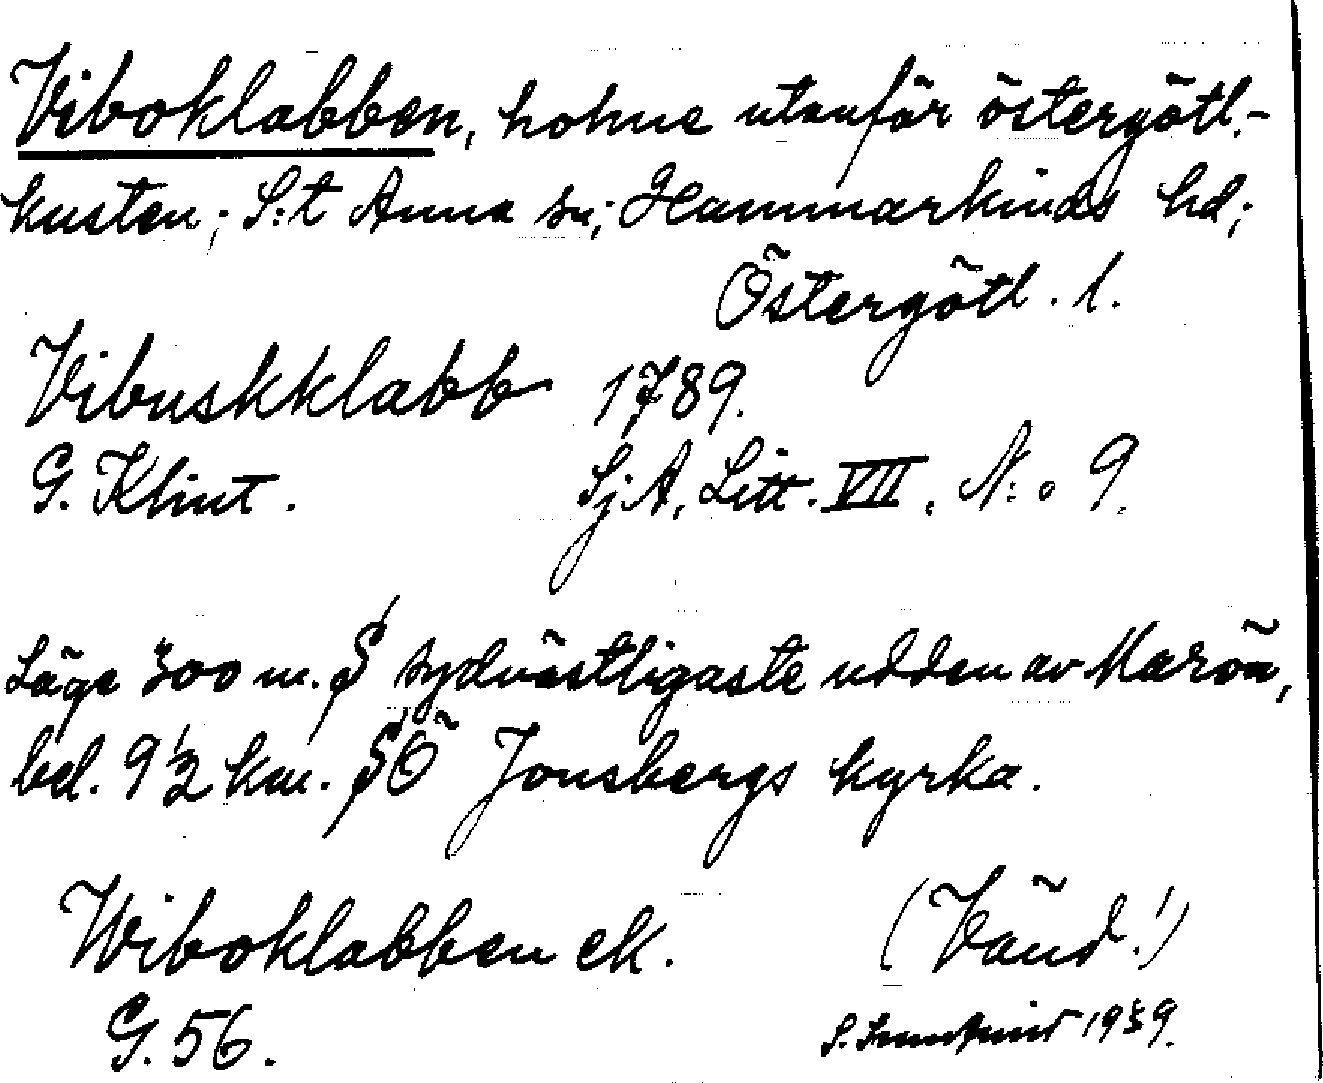 Viboklabben, holme utanför östergötl.-
kusten; S:t Anna sn; Hammarkinds hd;
Östergötl. l.
Vibuskklabb 1789.
G. Klint. Sj A, Litt. VII, N:o 9.
Läge 300 m. S sydvästligaste udden av Marön,
bel. 9 1/2 km. SÖ Jonsbergs kyrka.
Wiboklabben ek. (Vänd!)
G. 56. S. 1939.